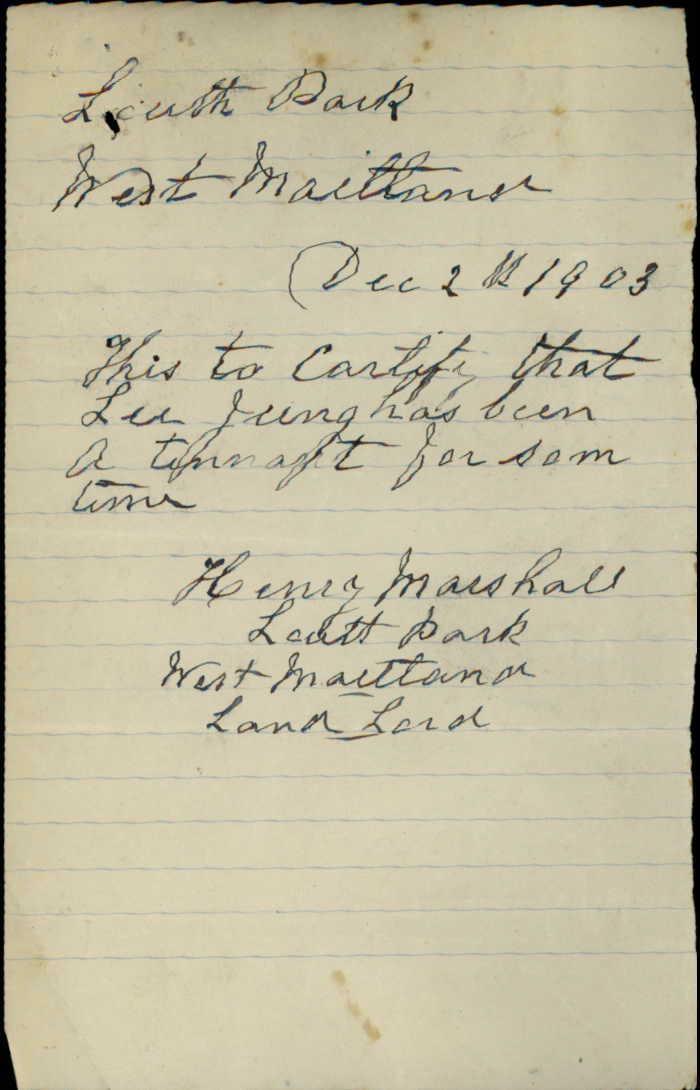 Louth Park
West Maitland
Dec 2th 1903
This to Cartify that
Lee Jung has been
A tennant for som
time
Henry Marshall
Loutt Park
West Maitland
Land Lord